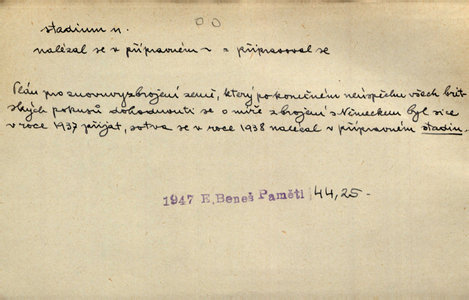 stadium n.
nalézal se v přípravném ~ = připravoval se
Plán pro znovuvyzbrojení země, který po konečném neúspěchu všech brit-
ských pokusů dohodnouti se o míře zbrojení s Německem byl sice
v roce 1937 přijat, sotva se v roce 1938 nalézal v přípravném stadiu.
1947 E. Beneš Paměti 44,25.-